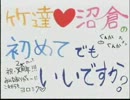 竹達♥沼倉の
初めてでも
いいですか。